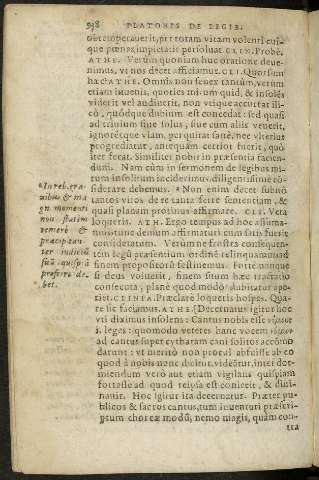 598 PLATONIS DE LEGIB.
que pœnas impietatis persoluat. CLIN. Probè.
ATHE. Verùm quoniam huc oratione deue-
nimus, vt nos decet afficiamur. CLI. Quorsum
hæc? ATHE. Omnis non senex tantùm, verùm
etiam iuuenis, quoties mirum quid, & insolēs
viderit vel audiuerit, non vtique accurrat illi-
cò, quódque dubium est concedat: sed quasi
ad triuium siue solus, siue cum aliis venerit,
ignorétque viam, perquirat sanè, nec vlterius
progrediatur, antequàm certior fuerit, quò
iter ferat. Similiter nobis in præsentia facien-
dum. Nam cùm in sermonem de legibus mi-
rum insolitum inciderimus, diligentissimè cō-
siderare debemus. * Non enim decet subitò
tantos viros de re tanta ferre sententiam, &
quasi planum protinus affirmare. CLI. Vera
loqueris. ATH. Ergo tempus ad hoc assuma-
mus: tunc denum affirmaturi cùm satis fuerit
consideratum. Verùm ne frustra consequen-
tem legū præsentium ordinē relinquamus, ad
finem propositorū festinemus. Fortè nanque
si deus voluerit, finem suum hæc tractatio
consecuta, planè quod modò dubitatur ape-
riet. CLINIA. Præclarè loqueris hospes. Qua-
re sic faciamus. ATHE. Decernatur igitur hoc
vti diximus insolens: Cantus nobis esse νόμους
i. leges: quomodo veteres hanc vocem νόμων
ad cantus super cytharam cani solitos accōmo
darunt: vt meritò non procul abfuisse ab eo
quod à nobis nunc dicitur, videātur, inter dor-
miendum verò aut etiam vigilans quispiam
fortasse ad quod reipsa est coniecit, & diui-
nauit. Hoc igitur ita decernatur. Præter pu-
blicos & sacros cantus, tum iuuenum præscri-
ptum choreæ modū, nemo magis, quàm con-
tra
* In reb. gra
uibus & ma
gni momenti
non statim
temerè &
præcipitan-
ter iudiciū
suū quispiā
proferre de-
bet.